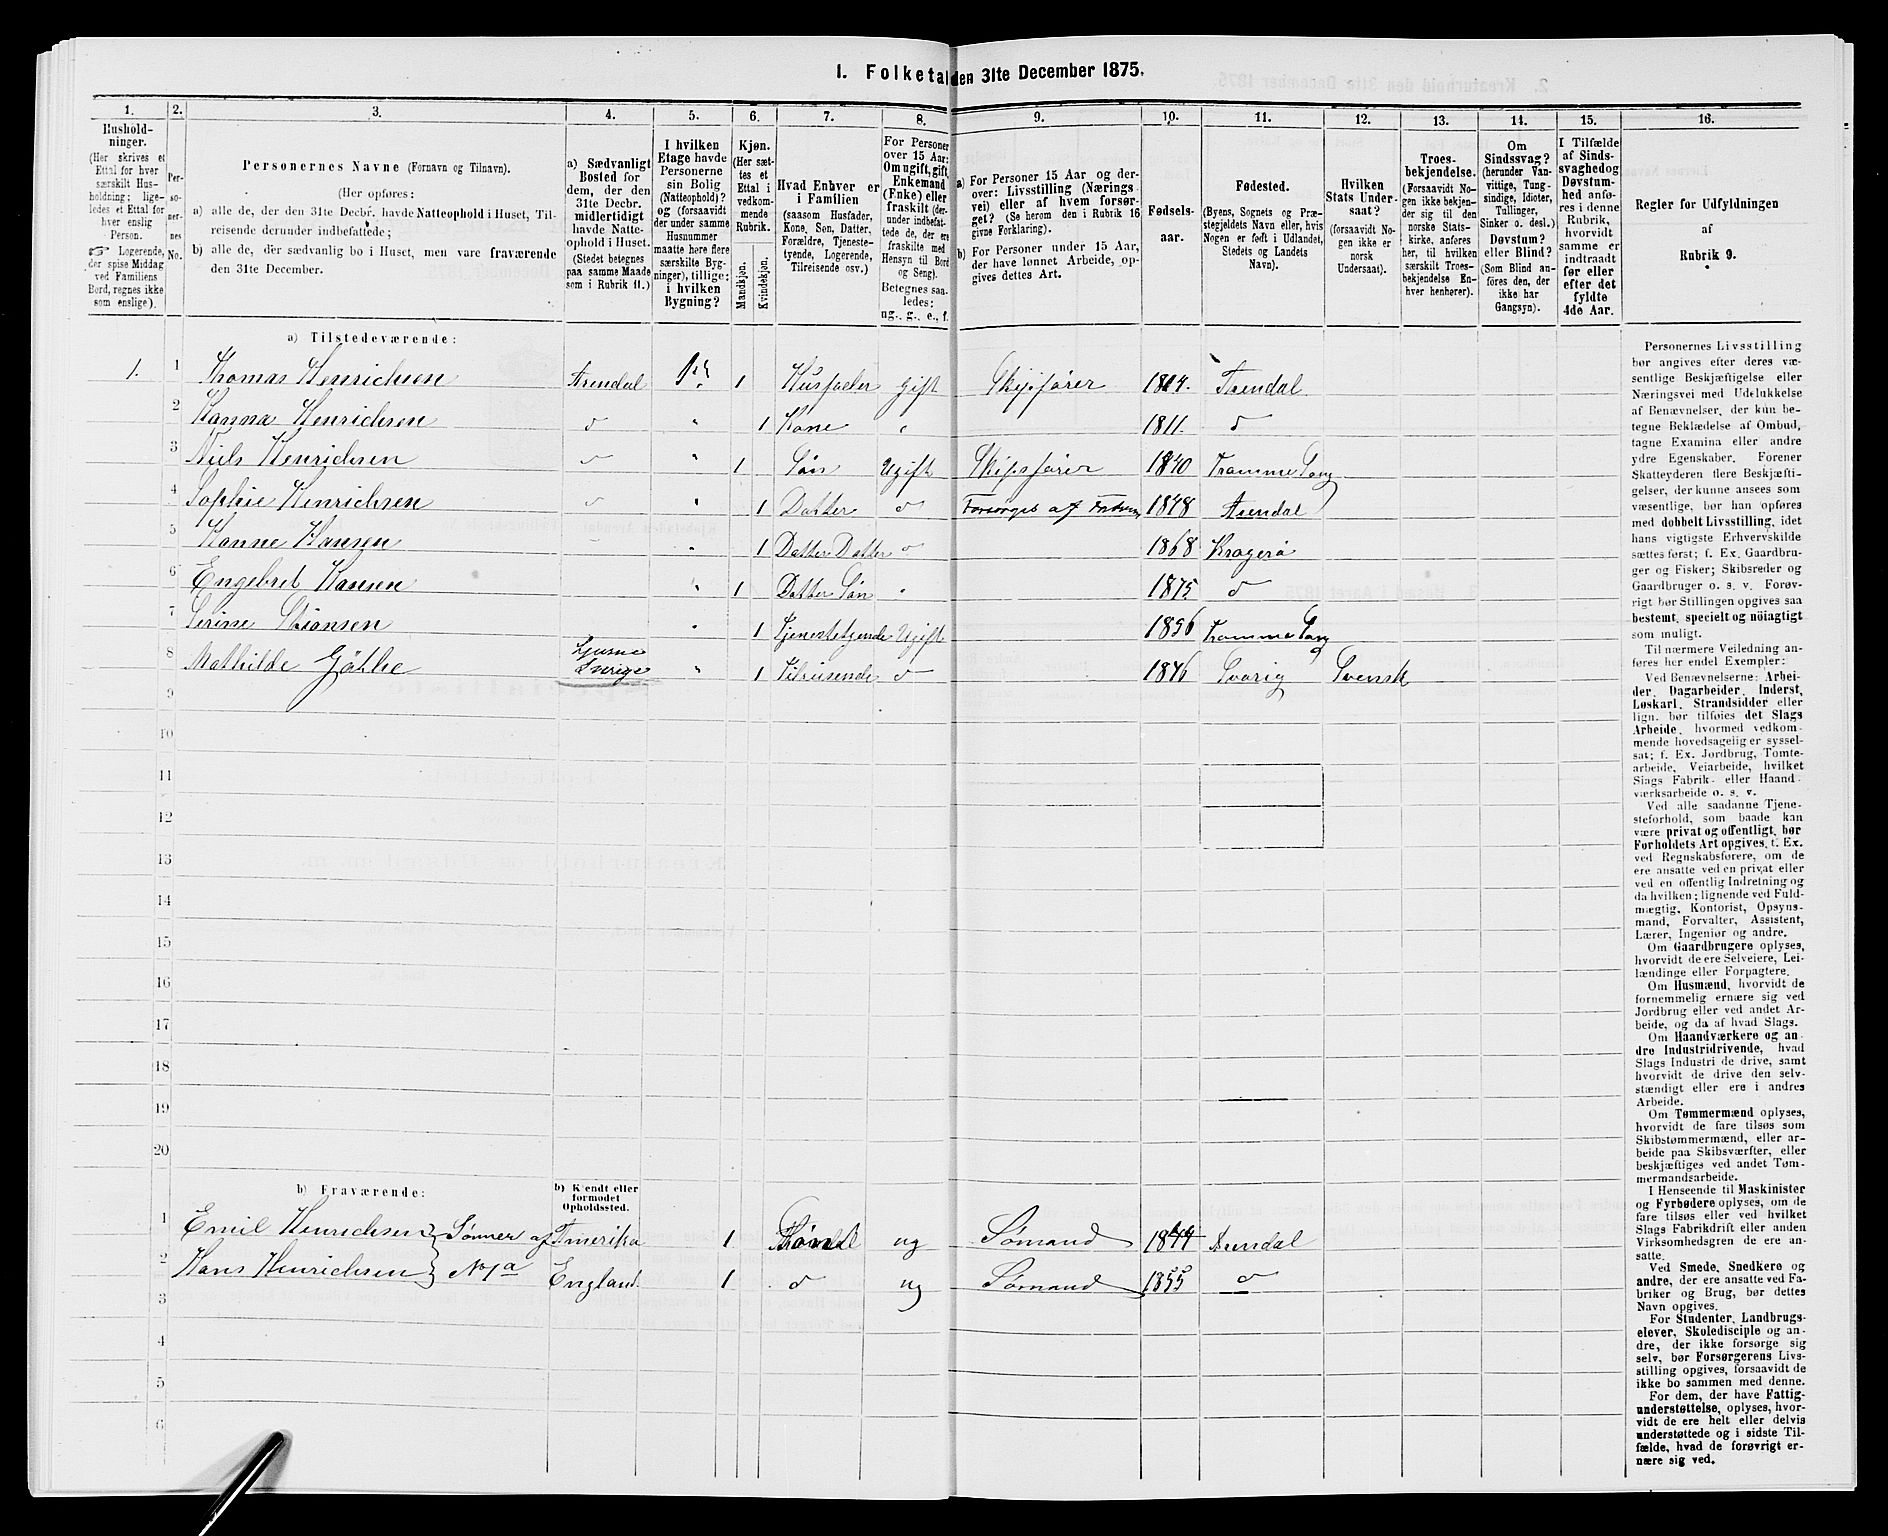 1. Folketal den 31te December 1875.
1. 2. 3. 4. 5. 6. 7. 8. 9. 10. 11. 12. 13. 14. 15. 16.
Hushold-
ninger.
(Her skrives et
Ettal for hver
særskilt Hus-
holdning; lige-
ledes et Ettal for
hver enslig
Person.
☞ Logerende,
der spise Middag
ved Familiens
Bord, regnes ikke
som enslige).
Per-
so-
ner-
nes
No.
Personernes Navne (Fornavn og Tilnavn).
(Her opføres:
a) alle de, der den 31te Decbr. havde Natteophold i Huset, Til-
reisende derunder indbefattede;
b) alle de, der sædvanlig bo i Huset, men vare fraværende
den 31te December.
a) Sædvanligt
Bosted for
dem, der den
31te Decbr.
midlertidigt
havde Natte-
ophold i Huset.
(Stedet betegnes
paa samme Maade
som i Rubrik 11.)
I hvilken
Etage havde
Personerne
sin Bolig
(Natteophold)?
og (forsaavidt
der under samme
Husnummer
maatte høre flere
særskilte Byg-
ninger), tillige:
i hvilken
Bygning?
Kjøn.
(Her sæt-
tes et
Ettal i
vedkom-
mende
Rubrik.
Mandkjøn.
Kvindekjøn.
Hvad Enhver er
i Familien
(saasom Husfader,
Kone, Søn, Datter,
Forældre, Tjeneste-
tyende, Logerende,
Tilreisende osv.)
For Personer
over 15 Aar:
Om ugift, gift,
Enkemand
(Enke) eller
fraskilt (der-
under indbefat-
tede de, der ere
fraskilte med
Hensyn til Bord
og Seng).
Betegnes saa-
ledes:
ug., g., e., f.
a) For Personer 15 Aar og der-
over: Livsstilling (Nærings-
vei) eller af hvem forsør-
get? (Se herom den i Rubrik 16
givne Forklaring).
b) For Personer under 15 Aar,
der have lønnet Arbeide, op-
gives dettes Art.
Fødsels-
aar.
Fødested.
(Byens, Sognets og Præ-
stegjeldets Navn eller, hvis
Nogen er født i Udlandet,
Stedets og Landets
Navn).
Hvilken
Stats Under-
saat?
(forsaavidt No-
gen ikke er
norsk
Undersaat).
Troes-
bekjendelse.
(Forsaavidt No-
gen ikke bekjen-
der sig til den
norske Stats-
kirke, anføres
her, til hvilken
særskilt Troes-
bekjendelse En-
hver henhører).
Om
Sindssvag?
(herunder Van-
vittige, Tung-
sindige, Idioter,
Tullinger,
Sinker o. desl.)
Døvstum?
eller Blind?
(Som Blind an-
føres den, der
ikke har
Gangsyn).
I Tilfælde
af Sinds-
svaghed og
Døvstum-
hed anfø-
res i denne
Rubrik,
hvorvidt
samme er
indtraadt
før eller
efter det
fyldte
4de Aar.
Regler for Udfyldningen
af
Rubrik 9.
a) Tilstedeværende:
1. 1 Thomas Henrichsen Arendal 1 Husfader gift Skipsfører 1814. Arendal
2 Hanna Henrichsen d " 1 Kone " 1811. d
3 Niels Henrichsen d " 1 Søn Ugift Skipsfører 1840 Tromme Sogn
4 Sophie Henrichsen d " 1 Datter d Forsørges af Faderen 1848 Arendal
5 Hanne Hansen " 1 Datter Datter d 1868 Kragerø
6 Engebret Hansen " 1 Datter Søn " 1875 d
7 Serine " 1 Tjenestetyende Ugift 1856 Tromme Sogn
8 Mathilde Gøthe Sverige " 1 Tilreisende d 1846 Sverig Svensk
9
10
11
12
13
14
15
16
17
18
19
20
b) Fraværende:
b) Kjendt eller
formodet
Opholdssted.
1 Emil Henrichsen } Sønner af Amerika 1 ug Sømand 1844 Arendal
2 Hans Henrichsen } No 1 a England 1 d ug Sømand 1855 d
3
4
5
6
Personernes Livsstilling
bør angives efter deres væ-
sentlige Beskjæftigelse eller
Næringsvei med Udelukkelse
af Benævnelser, der kun be-
tegne Beklædelse af Ombud,
tagne Examina eller andre
ydre Egenskaber. Forener
Skatteyderen flere Beskjæfti-
gelser, der kunne ansees som
væsentlige, bør han opføres
med dobbelt Livsstilling, idet
hans vigtigste Erhvervskilde
sættes først; f. Ex. Gaardbru-
ger og Fisker; Skibsreder og
Gaardbruger o. s. v. Forøv-
rigt bør Stillingen opgives saa
bestemt, specielt og nøiagtigt
som muligt.
Til nærmere Veiledning an-
føres her endel Exempler:
Ved Benævnelserne: Arbei-
der, Dagarbeider, Inderst,
Løskarl, Strandsidder eller
lign. bør tilføies det Slags
Arbeide, hvormed vedkom-
mende hovedsagelig er syssel-
sat; f. Ex. Jordbrug, Tomte-
arbeide, Veiarbeide, hvilket
Slags Fabrik- eller Haand-
værksarbeide o. s. v.
Ved alle saadanne Tjene-
steforhold, som baade kan
være privat og offentligt, bør
Forholdets Art opgives, f. Ex.
ved Regnskabsførere, om de
ere ansatte ved en privat eller
ved en offentlig Indretning og
da hvilken; lignende ved Fuld-
mægtig, Kontorist, Opsyns-
mand, Forvalter, Assistent,
Lærer, Ingeniør og andre.
Om Gaardbrugere oplyses,
hvorvidt de ere Selveiere, Lei-
lændinge eller Forpagtere.
Om Husmænd, hvorvidt de
fornemmelig ernære sig ved
Jordbrug eller ved andet Ar-
beide, og da af hvad Slags.
Om Haandværkere og an-
dre Industridrivende, hvad
Slags Industri de drive, samt
hvorvidt de drive den selv-
stændigt eller ere i andres
Arbeide.
Om Tømmermænd oplyses,
hvorvidt de fare tilsøs som
Skibstømmermænd, eller ar-
beide paa Skibsværfter, eller
beskjæftiges ved andet Tøm-
mermandsarbeide.
I Henseende til Maskinister
og Fyrbødere oplyses, om de
fare tilsøs eller ved hvilket
Slags Fabrikdrift eller anden
Virksomhedsgren de ere an-
satte.
Ved Smede, Snedkere og
andre, der ere ansatte ved Fa-
briker og Brug, bør dettes
Navn opgives.
For Studenter, Landbrugs-
elever, Skoledisciple og an-
dre, der ikke forsørge sig
selv, bør Forsørgerens Livs-
stilling opgives, forsaavidt de
ikke bo sammen med denne.
For dem, der have Fattig-
understøttelse, oplyses, hvor-
vidt de ere helt eller delvis
understøttede og i sidste Til-
fælde, hvad de forøvrigt er-
nære sig ved.